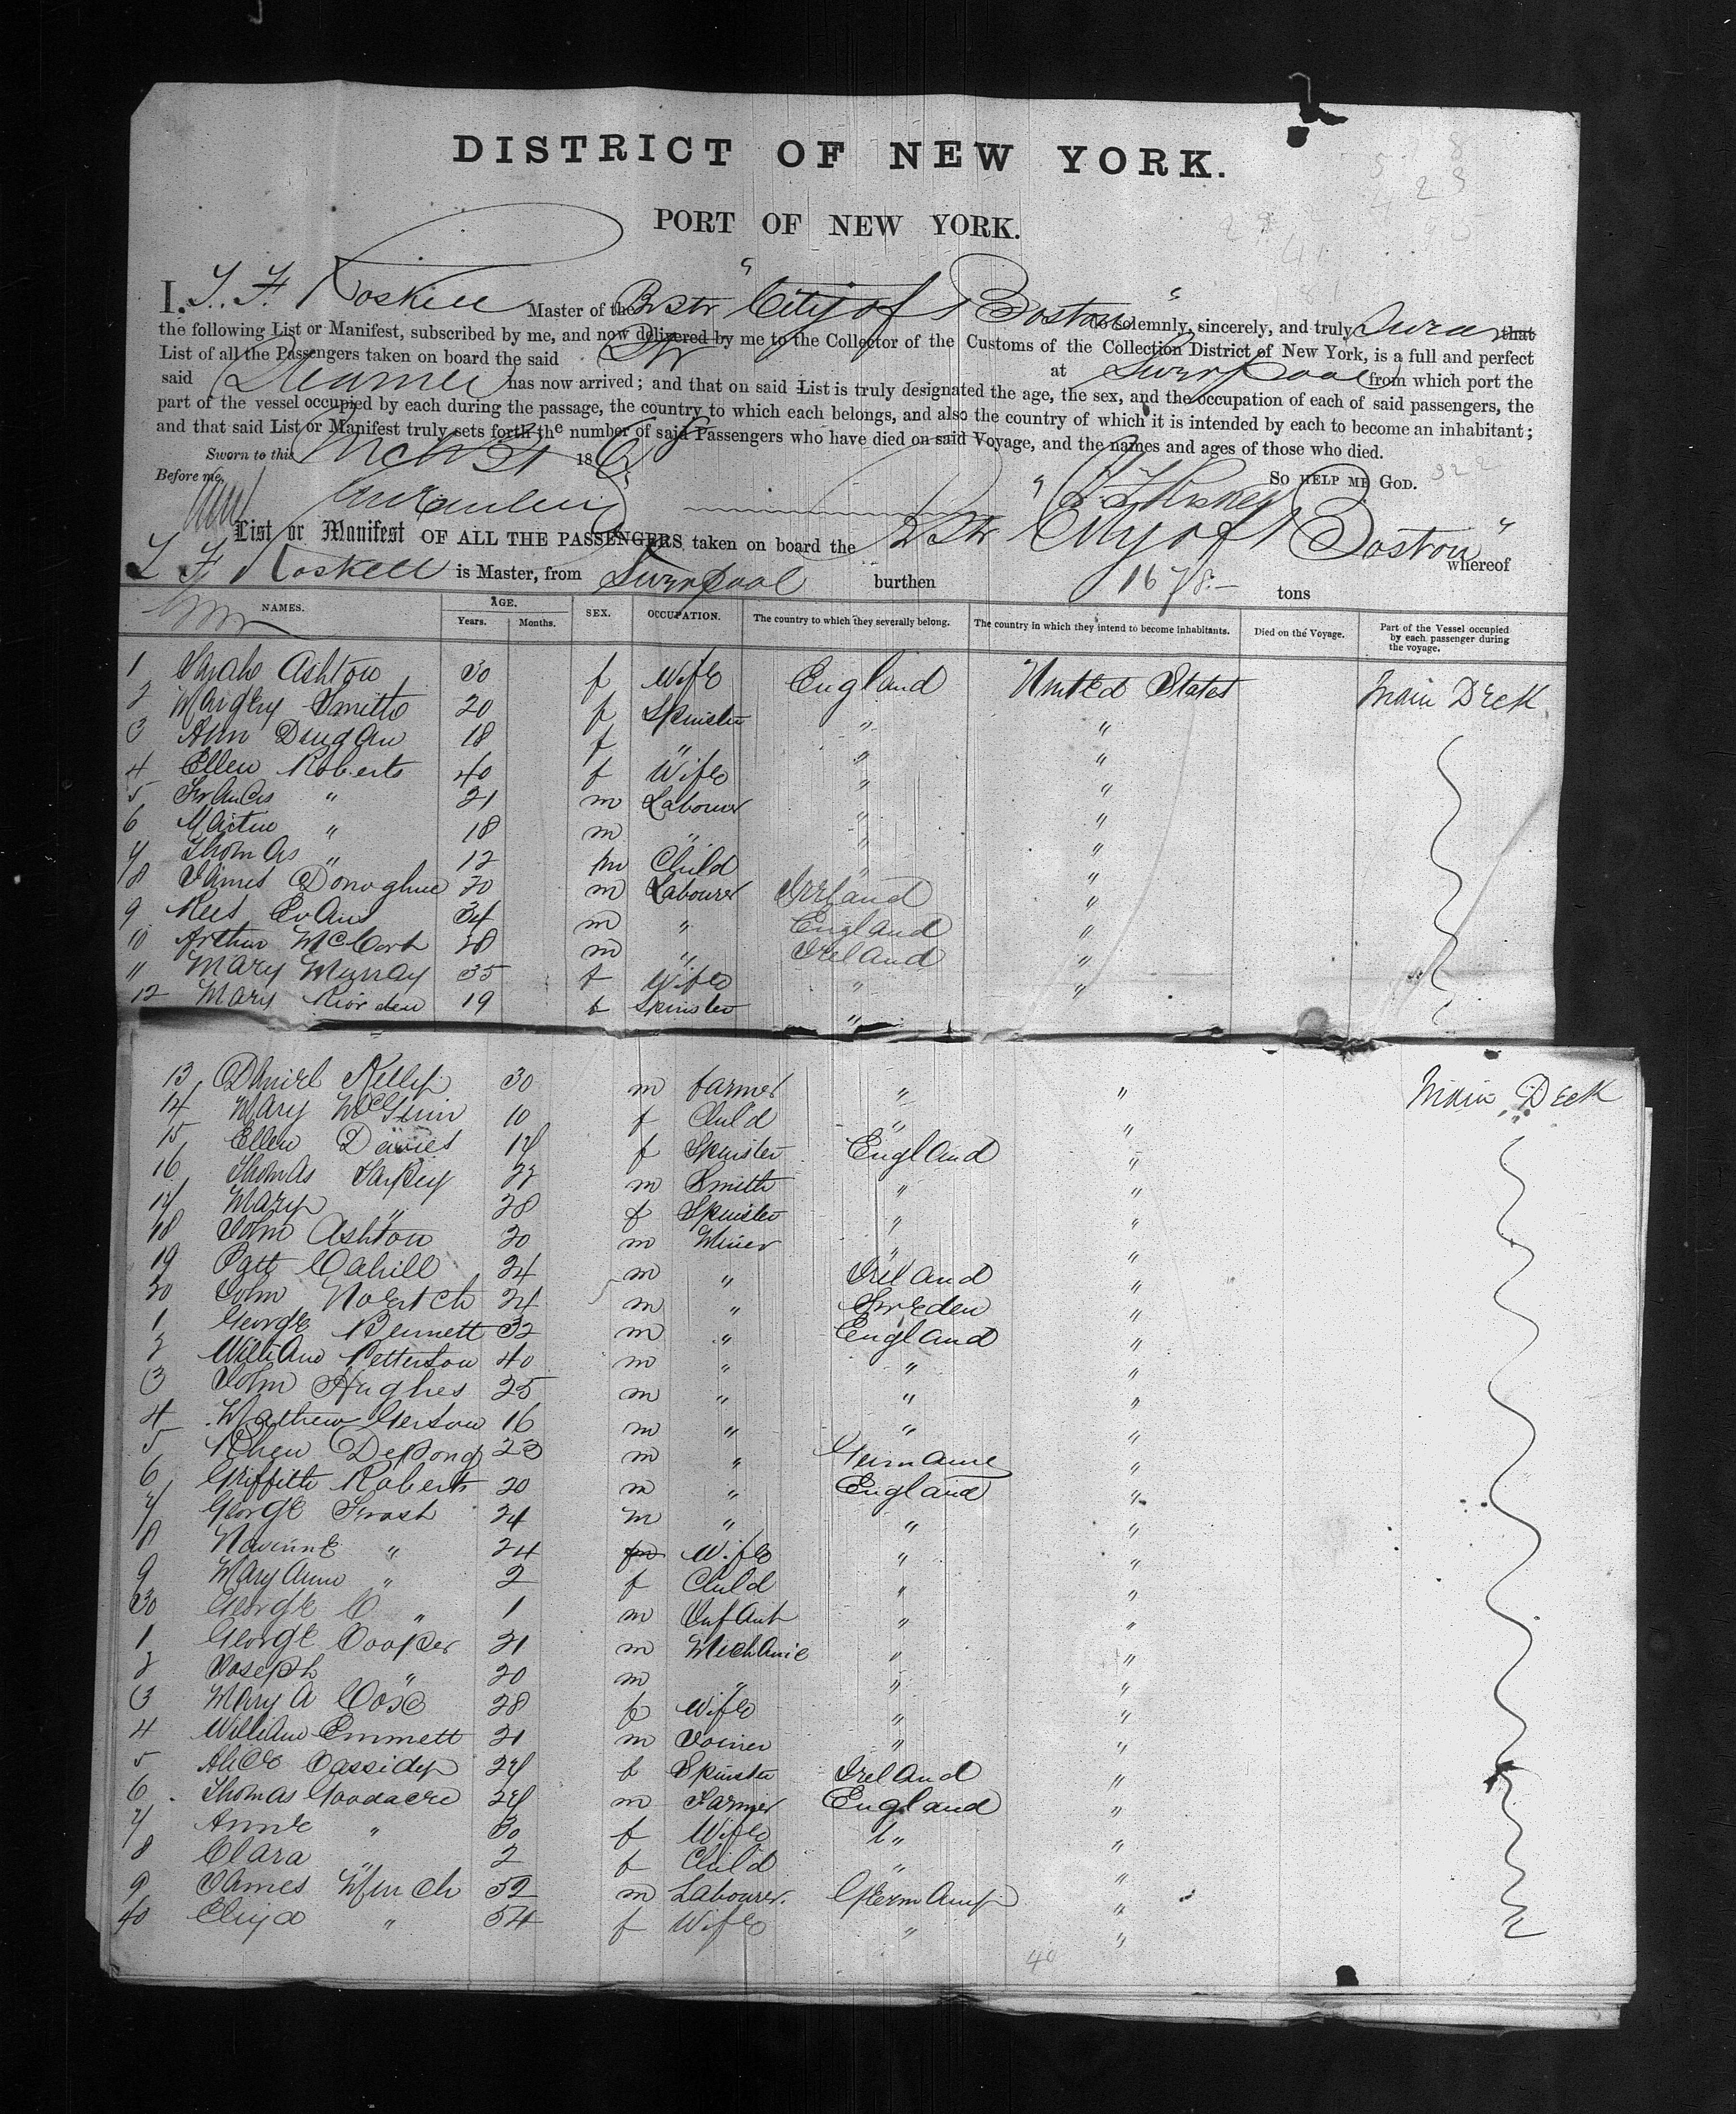 DISTRICT OF NEW YORK.
PORT OF NEW YORK.
I, J. F. Roskell Master of the Br Str "City of Boston" do solemnly, sincerely, and truly Swear that
the following List or Manifest, subscribed by me, and now delivered by me to the Collector of the Customs of the Collection District of New York, is a full and perfect
List of all the Passengers taken on board the said Str at Liverpool from which port the
said Steamer has now arrived; and that on said List is truly designated the age, the sex, and the occupation of each of said passengers, the
part of the vessel occupied by each during the passage, the country to which each belongs, and also the country of which it is intended by each to become an inhabitant;
and that said List or Manifest truly sets forth the number of said Passengers who have died on said Voyage, and the names and ages of those who died.
Sworn to this Mch 21 186
So HELP ME GOD. 322
Before me,
List or Manifest OF ALL THE PASSENGERS taken on board the B Str "City of Boston" whereof
J F Roskell is Master, from Liverpool burthen 1678 - tons
NAMES. AGE. Years. Months. SEX. OCCUPATION. The country to which they severally belong. The country in which they intend to become inhabitants. Died on the Voyage. Part of the Vessel occupied by each passenger during the voyage.
1 Sarah Ashton 30 f Wife England United States Main Deck
2 Margery Smith 20 f Spinster " "
3 Ann Dugan 18 f " " "
4 Ellen Roberts 40 f Wife " "
5 Francis " 21 m Labourer " "
6 Martin " 18 m " " "
7 Thomas " 12 m Child " "
8 James Donoghue 30 m Labourer Ireland "
9 Rees Evans 34 m " England "
10 Arthur McCort 28 m " Ireland "
11 Mary Murray 35 f Wife " "
12 Mary Riorden 19 f Spinster "
13 Daniel Kelly 30 m farmer " " Main Deck
14 Mary McGinn 10 f Child " "
15 Ellen Davies 17 f Spinster England "
16 Thomas 22 m Smith " "
17 Mary " 28 f Spinster " "
18 John Ashton 20 m Miner " "
19 Patt Cahill 24 m " Ireland "
20 John 24 m " Sweden "
1 George Bennett 32 m " England "
2 William Petterson 40 m " " "
3 John Hughes 25 m " " "
4 Mathew Gerson 16 m " " "
5 23 m " Germany "
6 Griffith Roberts 20 m " England "
7 George Frash 24 m " " "
8 " 24 Wife " "
9 Mary Ann " 2 f Child " "
30 George C " 1 m Infant " "
1 George Cooper 21 m Mechanic " "
2 Joseph " 20 m " " "
3 Mary A 28 f Wife " "
4 William Emmett 21 m Joiner " "
5 Alice Cassidy 27 f Spinster Ireland "
6 Thomas Goodacre 27 m Farmer England "
7 Annie " 30 f Wife " "
8 Clara " 2 f Child " "
9 James 52 m Labourer. Germany "
40 Eliza " 54 f Wife " "
40